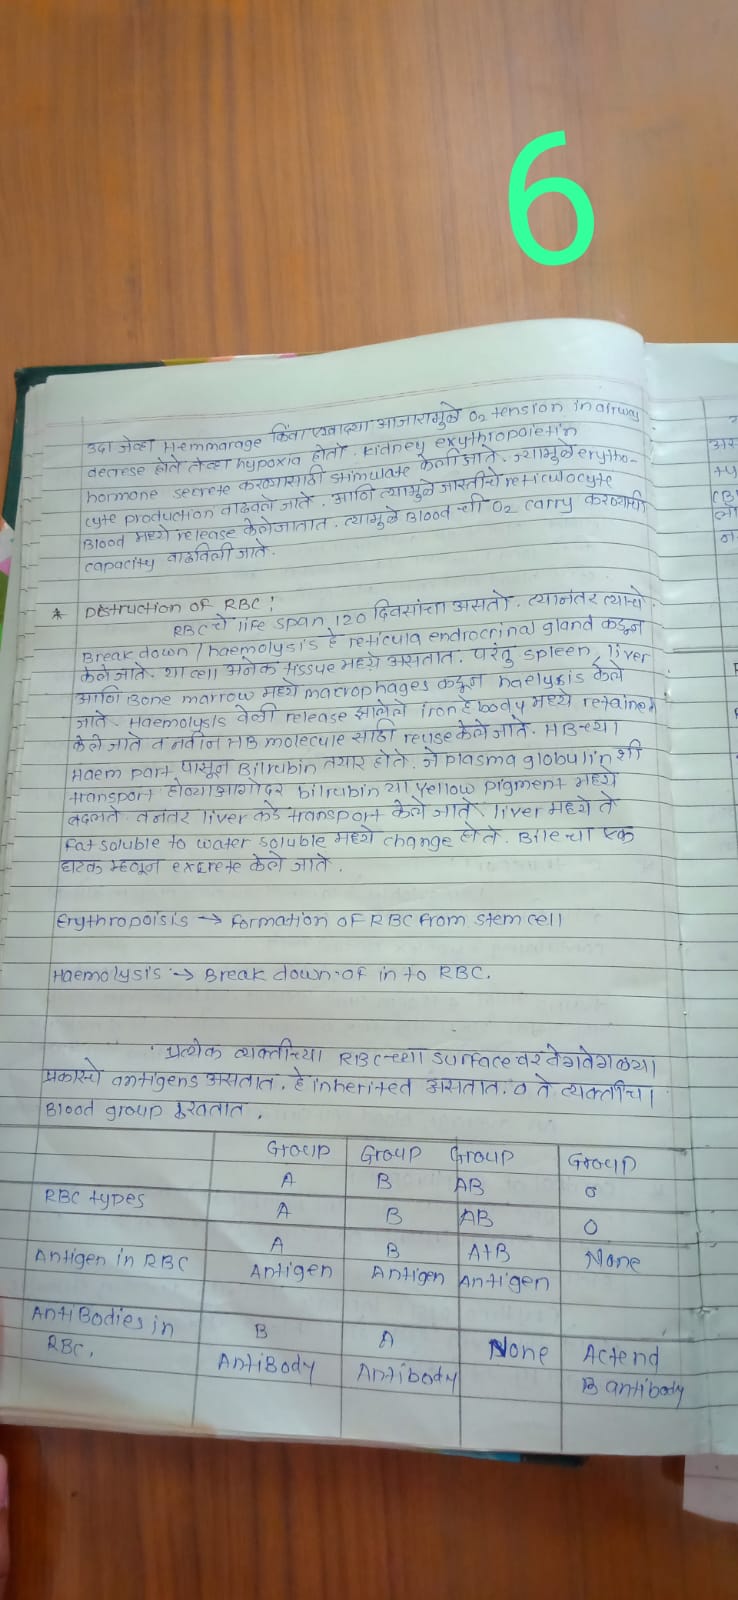 6
उदा जेव्हा Hemmarage किंवा एखाद्या आजारामुळे O2 tension in airway
decrese होते तेव्हा hypoxia होतो. kidney exythropoietin
hormone secrete करण्यासाठी stimulate केली जाते. ज्यामुळे erytho-
cyte production वाढवले जाते. आणि त्यामुळे जास्तीचे reticulocyte
Blood मध्ये release केले जातात. त्यामुळे Blood ची O2 carry करण्याची
capacity वाढविली जाते.
* Destruction of RBC:
RBC चे life span 120 दिवसांचा असतो. त्यानंतर त्याचे
Break down / haemolysis हे reticula endrocrinal gland कडून
केले जाते. या cell अनेक tissue मध्ये असतात. परंतु spleen, liver
आणि Bone marrow मध्ये macrophages कडून haelysis केले
जाते. Haemolysis वेळी release झालेले iron हे body मध्ये retained
केले जाते व नवीन HB molecule साठी reuse केले जाते. HB-च्या
Haem part पासून Bilrubin तयार होते. जे plasma globulin शी
transport होण्याआगोदर bilrubin या yellow pigment मध्ये
बदलते. वनंतर liver कडे transport केले जाते. liver मध्ये ते
fat soluble to water soluble मध्ये change होते. Bile चा एक
घटक म्हणून excrete केले जाते.
Erythropoisis → Formation OF RBC From stem cell
Haemolysis → Break down-of in to RBC.
प्रत्येक व्यक्तीच्या RBC-च्या surface वर वेगवेगळ्या
प्रकारचे antigens असतात. हे inherited असतात. व ते व्यक्तीचा
Blood group ठरवतात.
Group Group Group Group
A B AB O
RBC types A B AB O
Antigen in RBC A B A+B None
Antigen Antigen Antigen
AntiBodies in B A None Actend
RBC. AntiBody Antibody B antibody